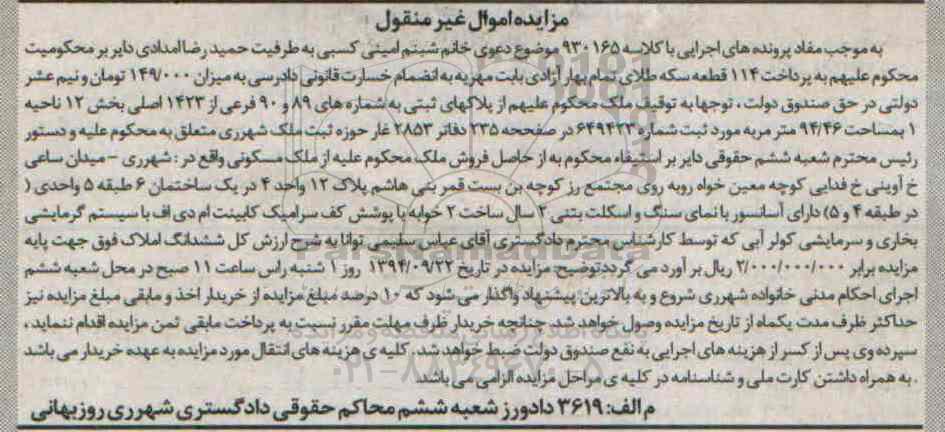 مزایده اموال غیر منقول
به موجب مفاد پرونده های اجرایی با کلاسه ۹۳۰۱۶۵ موضوع دعوی خانم شبنم امینی کسبی به طرفیت حمید رضا امدادی دایر بر محکومیت
محکوم علیهم به پرداخت ۱۱۴ قطعه سکه طلای تمام بهار آزادی بابت مهریه به انضمام خسارت قانونی دادرسی به میزان ۱۴۹/۰۰۰ تومان و نیم عشر
دولتی در حق صندوق دولت ، توجها به توقیف ملک محکوم علیهم از پلاکهای ثبتی به شماره های ۸۹ و ۹۰ فرعی از ۱۴۲۳ اصلی بخش ۱۲ ناحیه
۱ بمساحت ۹۴/۴۶ متر مربه مورد ثبت شماره ۶۴۹۴۲۳ در صفححه ۲۳۵ دفاتر ۲۸۵۳ غار حوزه ثبت ملک شهرری متعلق به محکوم علیه و دستور
رئیس محترم شعبه ششم حقوقی دایر بر استیفاء محکوم به از حاصل فروش ملک محکوم علیه از ملک مسکونی واقع در : شهرری - میدان ساعی
خ آوینی خ فدایی کوچه معین خواه روبه روی مجتمع رز کوچه بن بست قمر بنی هاشم پلاک ۱۲ واحد ۴ در یک ساختمان ۶ طبقه ۵ واحدی (
در طبقه ۴ و ۵) دارای آسانسور با نمای سنگ و اسکلت بتنی ۲ سال ساخت ۲ خوابه با پوشش کف سرامیک کابینت ام دی اف با سیستم گرمایشی
بخاری و سرمایشی کولر آبی که توسط کارشناس محترم دادگستری آقای عباس سلیمی توانا به شرح ارزش کل ششدانگ املاک فوق جهت پایه
مزایده برابر ۲/۰۰۰/۰۰۰/۰۰۰ ریال بر آورد می گردد توضیح: مزایده در تاریخ ۱۳۹۴/۰۹/۲۲ روز ۱ شنبه راس ساعت ۱۱ صبح در محل شعبه ششم
اجرای احکام مدنی خانواده شهرری شروع و به بالاترین پیشنهاد واگذار می شود که ۱۰ درصد مبلغ مزایده از خریدار اخذ و مابقی مبلغ مزایده نیز
حداکثر ظرف مدت یکماه از تاریخ مزایده وصول خواهد شد. چنانچه خریدار ظرف مهلت مقرر نسبت به پرداخت مابقی ثمن مزایده اقدام ننماید ،
سپرده وی پس از کسر از هزینه های اجرایی به نفع صندوق دولت ضبط خواهد شد . کلیه ی هزینه های انتقال مورد مزایده به عهده خریدار می باشد
. به همراه داشتن کارت ملی و شناسنامه در کلیه ی مراحل مزایده الزامی می باشد.
م الف: ۳۶۱۹ دادورز شعبه ششم محاکم حقوقی دادگستری شهرری روزبهانی